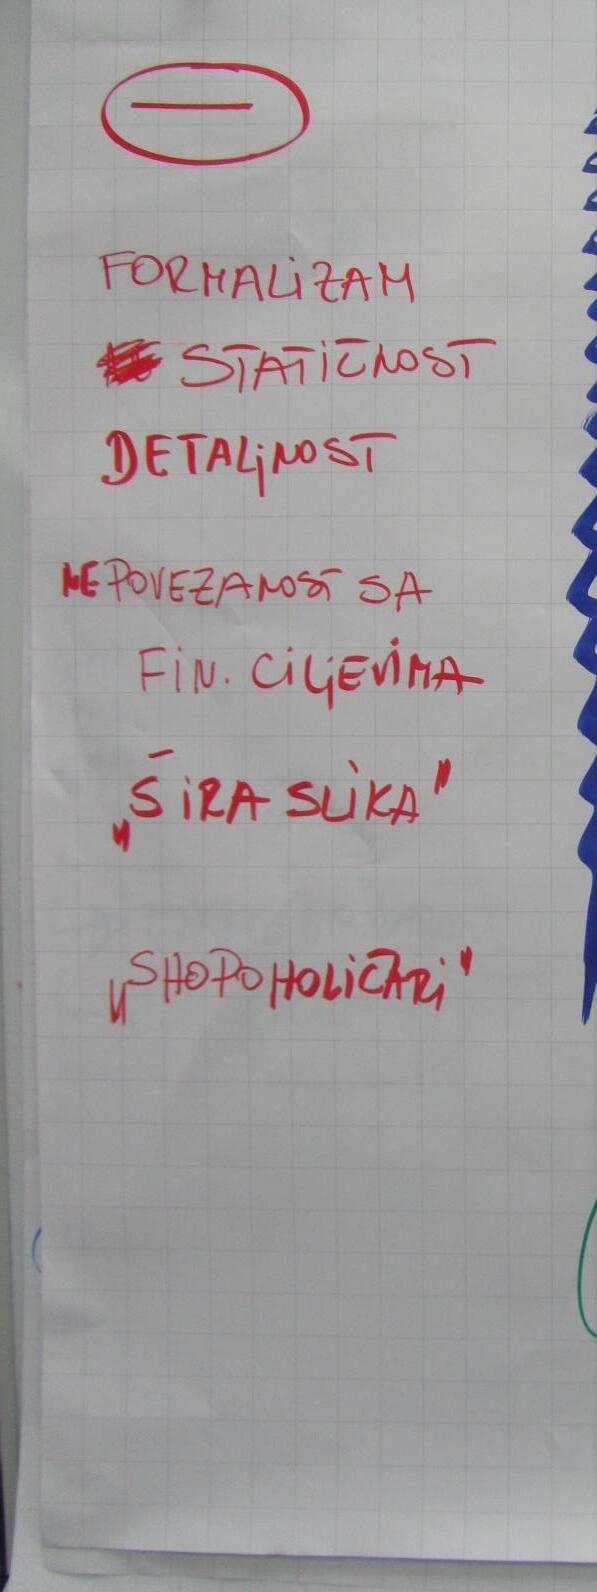 —
FORMALIZAM
STATIČNOST
DETALJNOST
NEPOVEZANOST SA
FIN. CILJEVIMA
„ŠIRA SLIKA"
„SHOPOHOLIČARI"